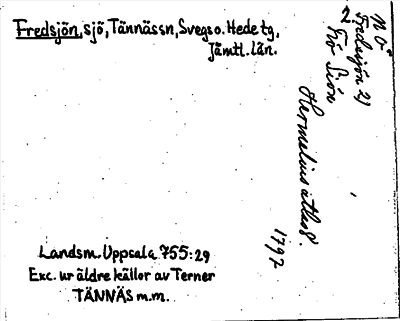 Fredsjön, sjö, Tännässn, Svegs o. Hede tg,
Jämtl. län.
Landsm. Uppsala 755:29
Exc. ur äldre källor av Terner
TÄNNÄS m.m.
M Ö
Fredsjön 2)
2. Frö Siön
Hermelins atlas 8.
1797